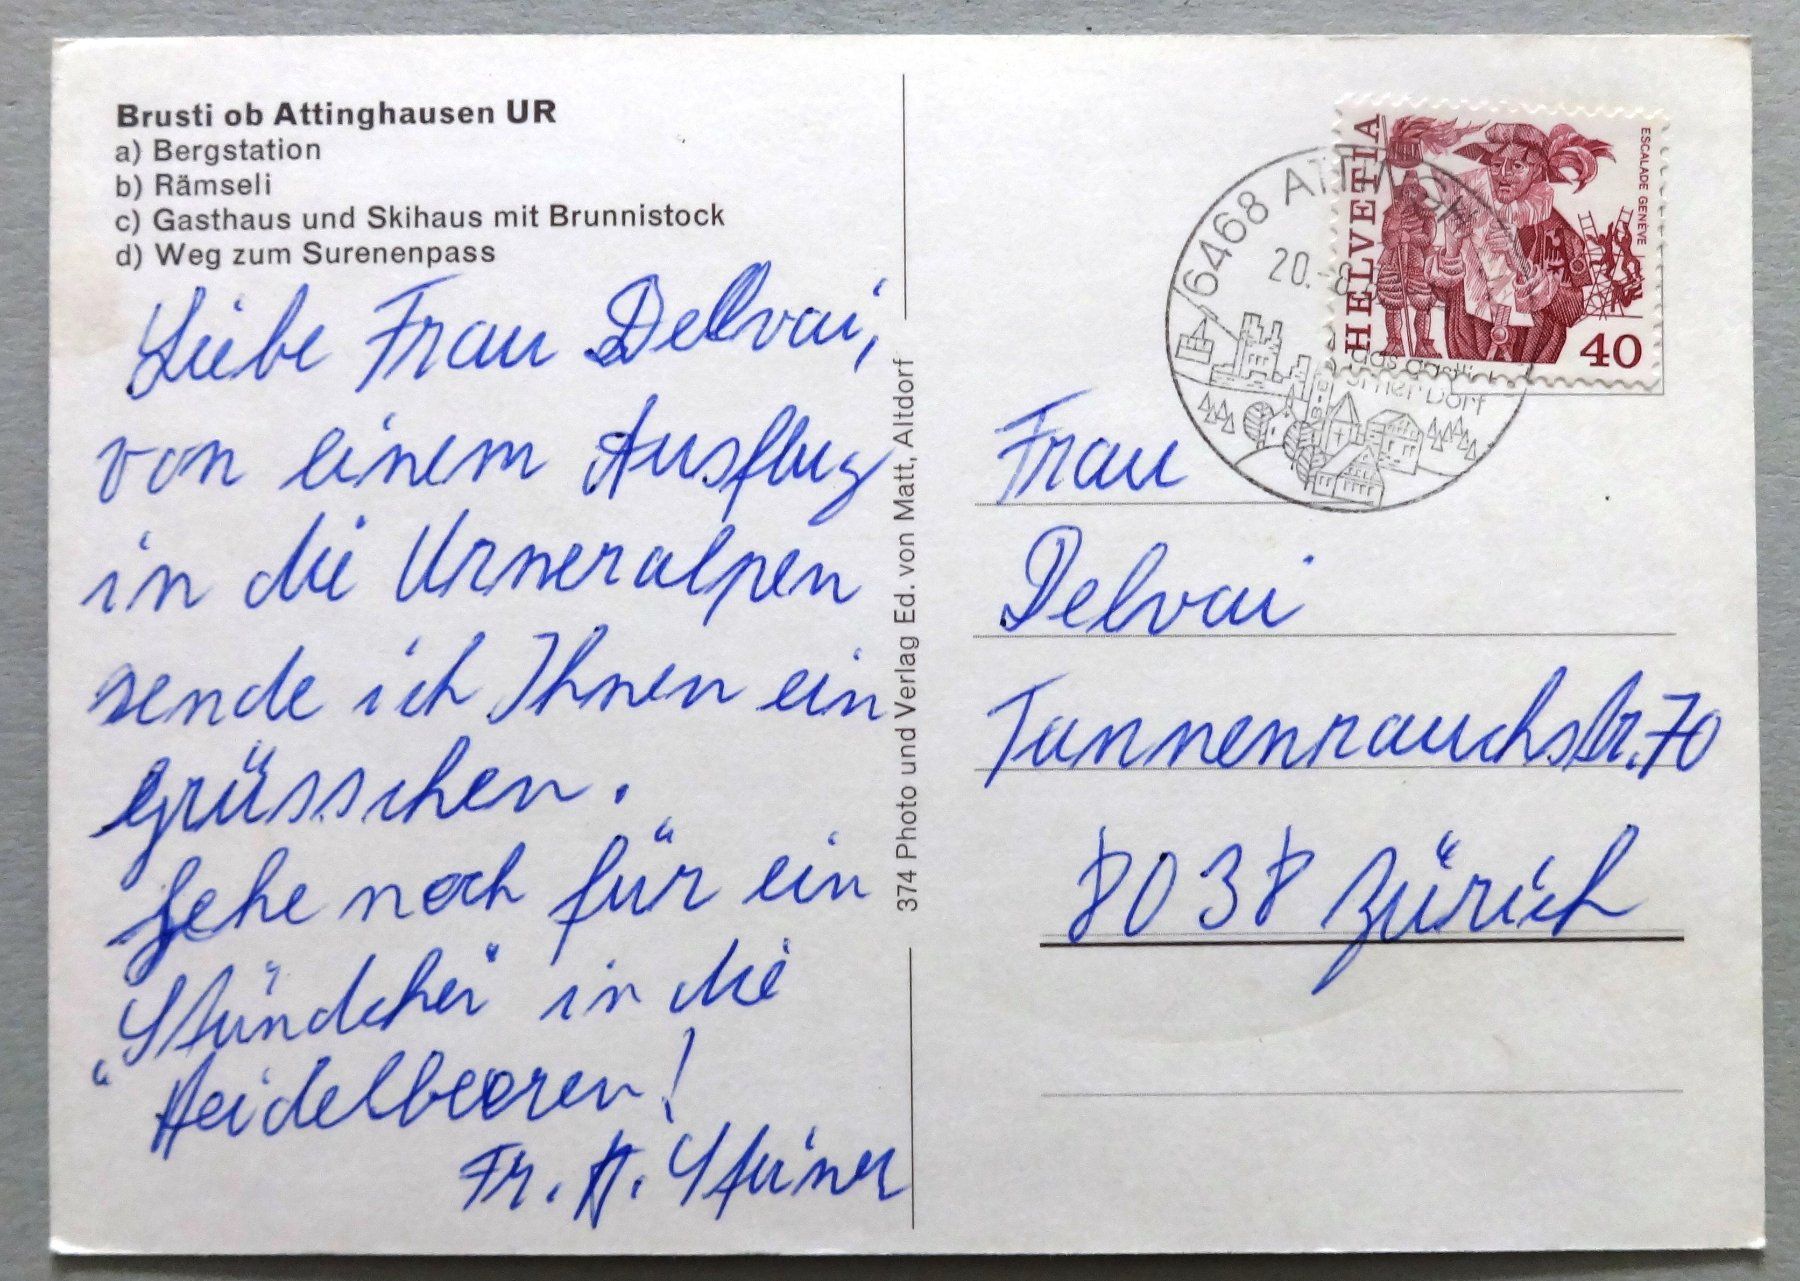 Brusti ob Attinghausen UR
a) Bergstation
b) Rämseli
c) Gasthaus und Skihaus mit Brunnistock
d) Weg zum Surenenpass
Liebe Frau Delvai,
von einem Ausflug
in die Urneralpen
sende ich Ihnen ein
Grüsschen.
Gehe noch für ein
"Stündchei" in die
Heidelbeeren!
Fr. H. Steiner
374 Photo und Verlag Ed. von Matt, Altdorf
HELVETIA
ESCALADE GENÈVE
40
6468 ATTINGH
20. -8
das gastli
Urner Dorf
Frau
Delvai
Tannenrauchstr. 70
8038 Zürich